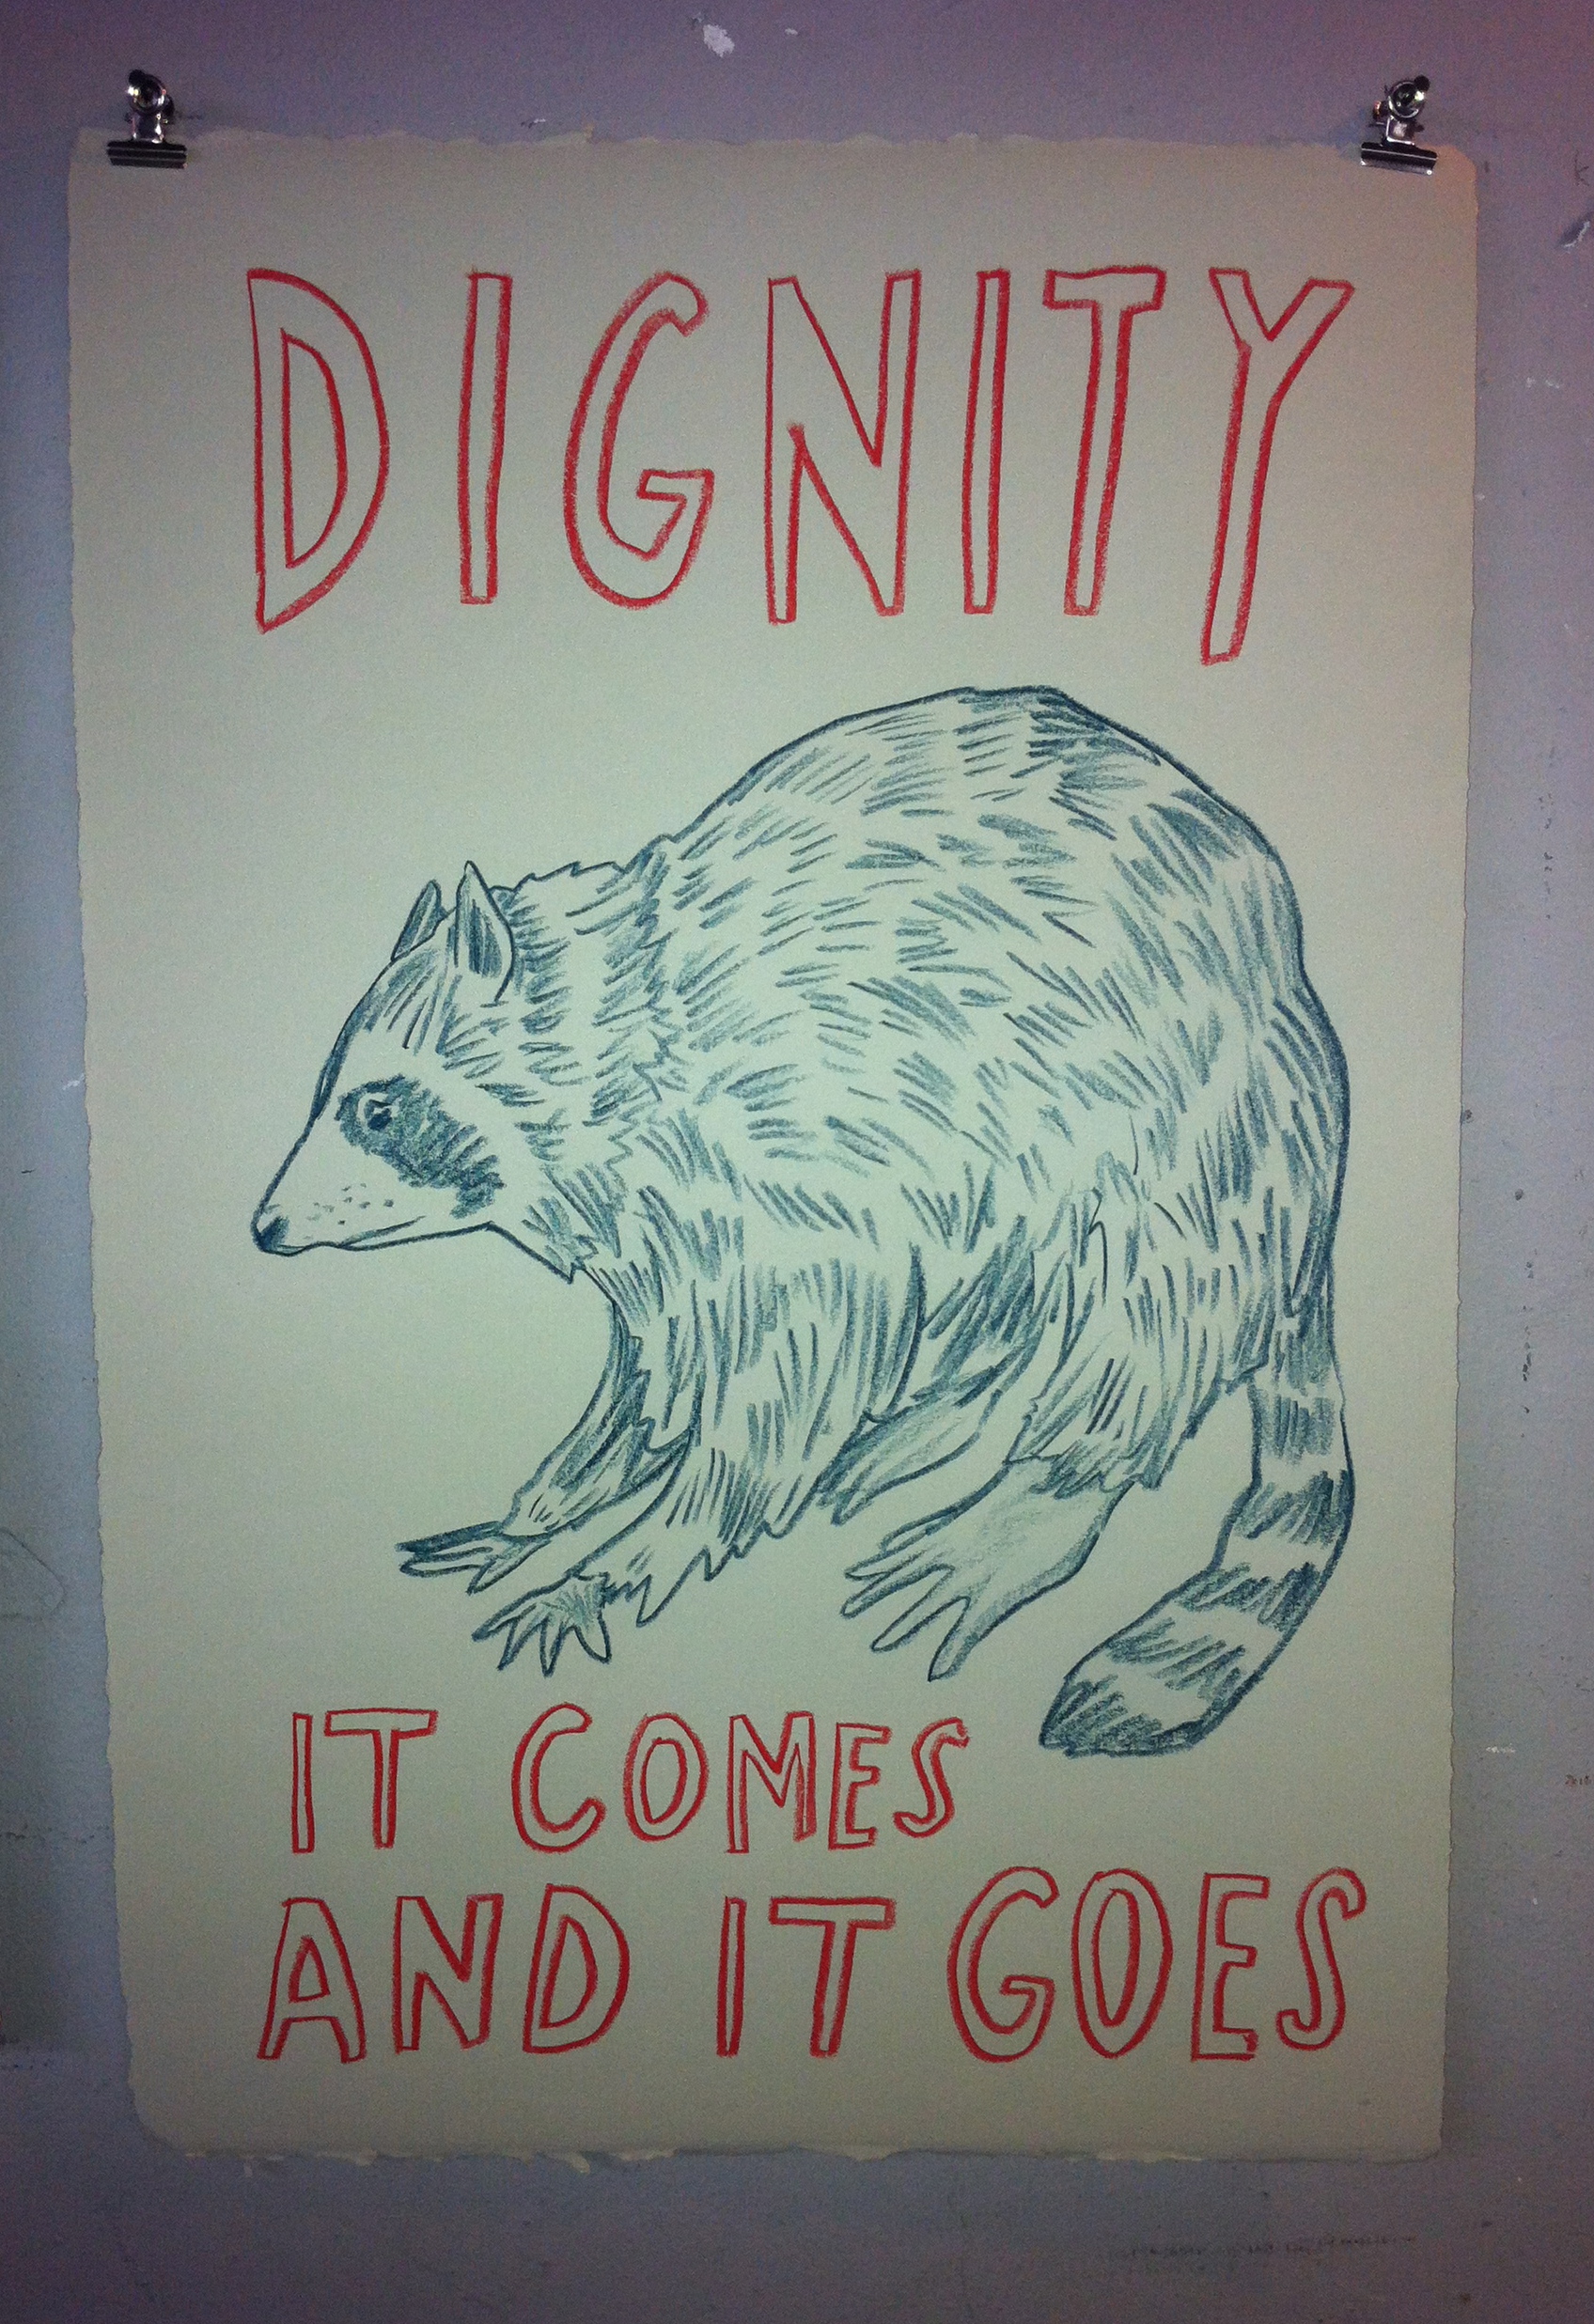 DIGNITY
IT COMES
AND IT GOES